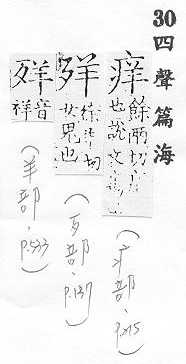 30 四聲篇海
痒 餘兩切
也說文
(疒部、
徐羊切
女鬼也
(歹部、p.137)
音
祥
(羊部、p.533)